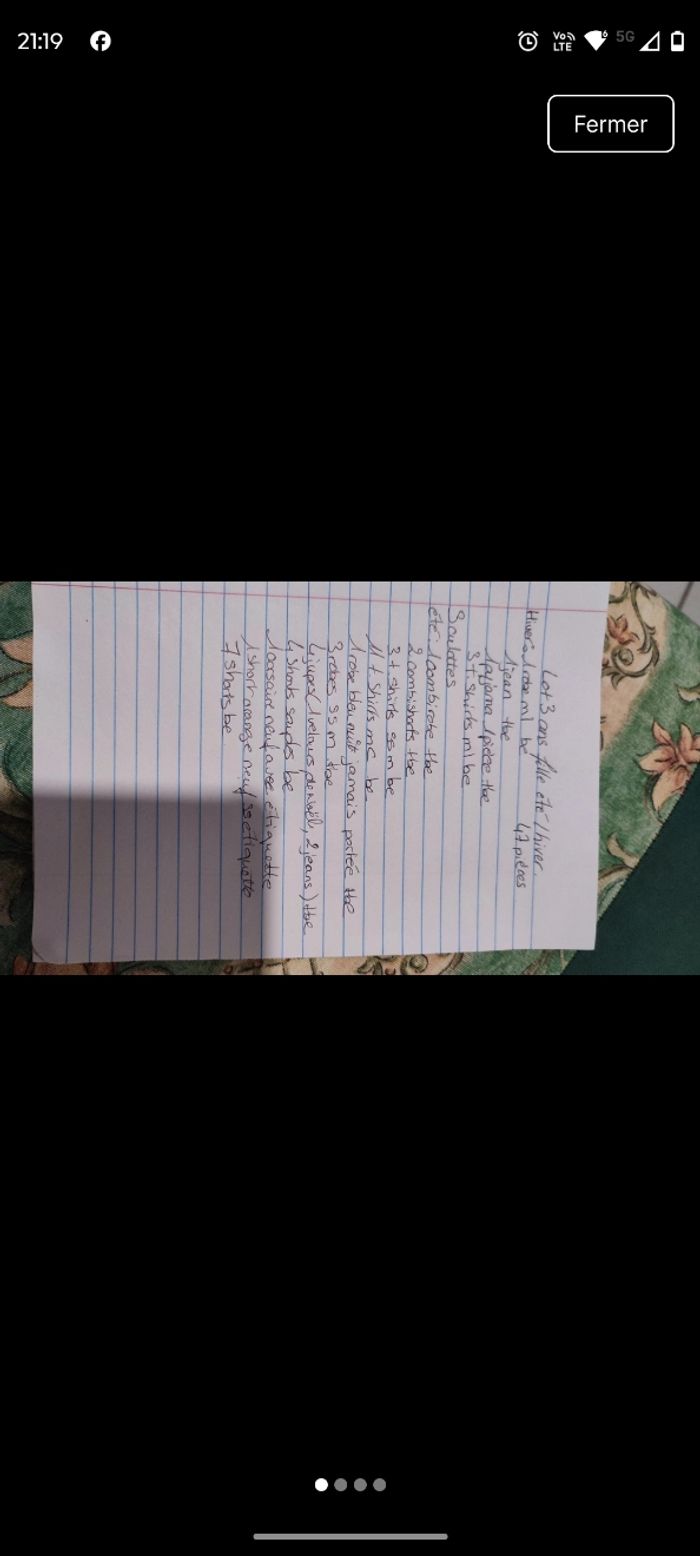 21:19
Vo LTE
6
5G
Fermer
Lot 3 ans fille été / hiver.
47 pièces
Hiver: 1 robe ml be
1 jean tbe
1 pyjama 1 pièce tbe
3 t. shirts ml be
3 culottes
été: 1 combi robe tbe
2 combishorts tbe
3 t. shirts ss m be
11 t. shirts mc be
1 robe bleu nuit jamais portée tbe
3 robes ss m tbe
4 jupes (1 velours de Noël, 2 jeans) tbe
4 shorts souples be
1 corsaire neuf avec étiquette
1 short orange neuf ss étiquette
7 shorts be